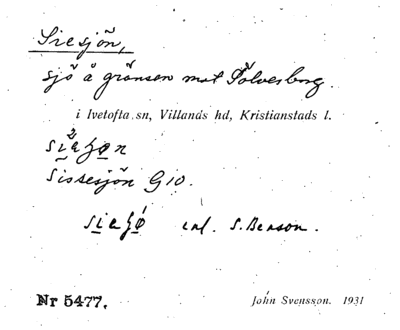 Siesjön,
sjö å gränsen mot Sölvesborg.
i Ivetofta sn, Villands hd, Kristianstads l.
Sissesjön G10.
enl. S. Benson.
Nr 5477. John Svensson. 1931